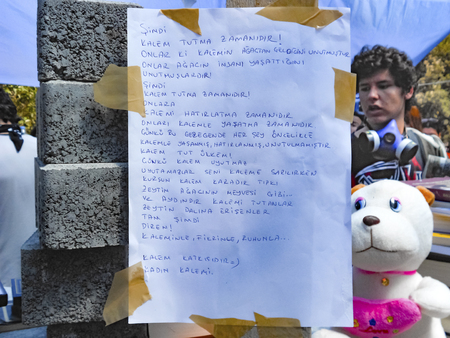 ŞİMDİ
KALEM TUTMA ZAMANIDIR!
ONLAR Kİ KALEMİN AĞAÇTAN GELDİĞİNİ UNUTMUŞTUR
ONLAR AĞACIN İNSANI YAŞATTIĞINI
UNUTMUŞLARDIR!
ŞİMDİ
KALEM TUTMA ZAMANIDIR!
ONLARA
KALEMİ HATIRLATMA ZAMANIDIR
ONLARI KALEMLE YAŞATMA ZAMANIDIR
ÇÜNKÜ BU GEZEGENDE HER ŞEY ÖNCELİKLE
KALEMLE YAŞANMIŞ, HATIRLANMIŞ, UNUTULMAMIŞTIR
KALEM TUT ÜLKEM!
ÇÜNKÜ KALEM UYUTMAZ
UYUTAMAZLAR SENİ KALEME SARILIRKEN
KURŞUN KALEM KARADIR TIPKI
ZEYTİN AĞACININ MEYVESİ GİBİ...
VE AYDINDIR KALEMİ TUTANLAR
ZEYTİN DALINA ERİŞENLER
TAM ŞİMDİ
DİREN!
KALEMİNLE, FİKRİNLE, RUHUNLA...
KALEM KATKISIDIR :)
KADIN KALEMİ